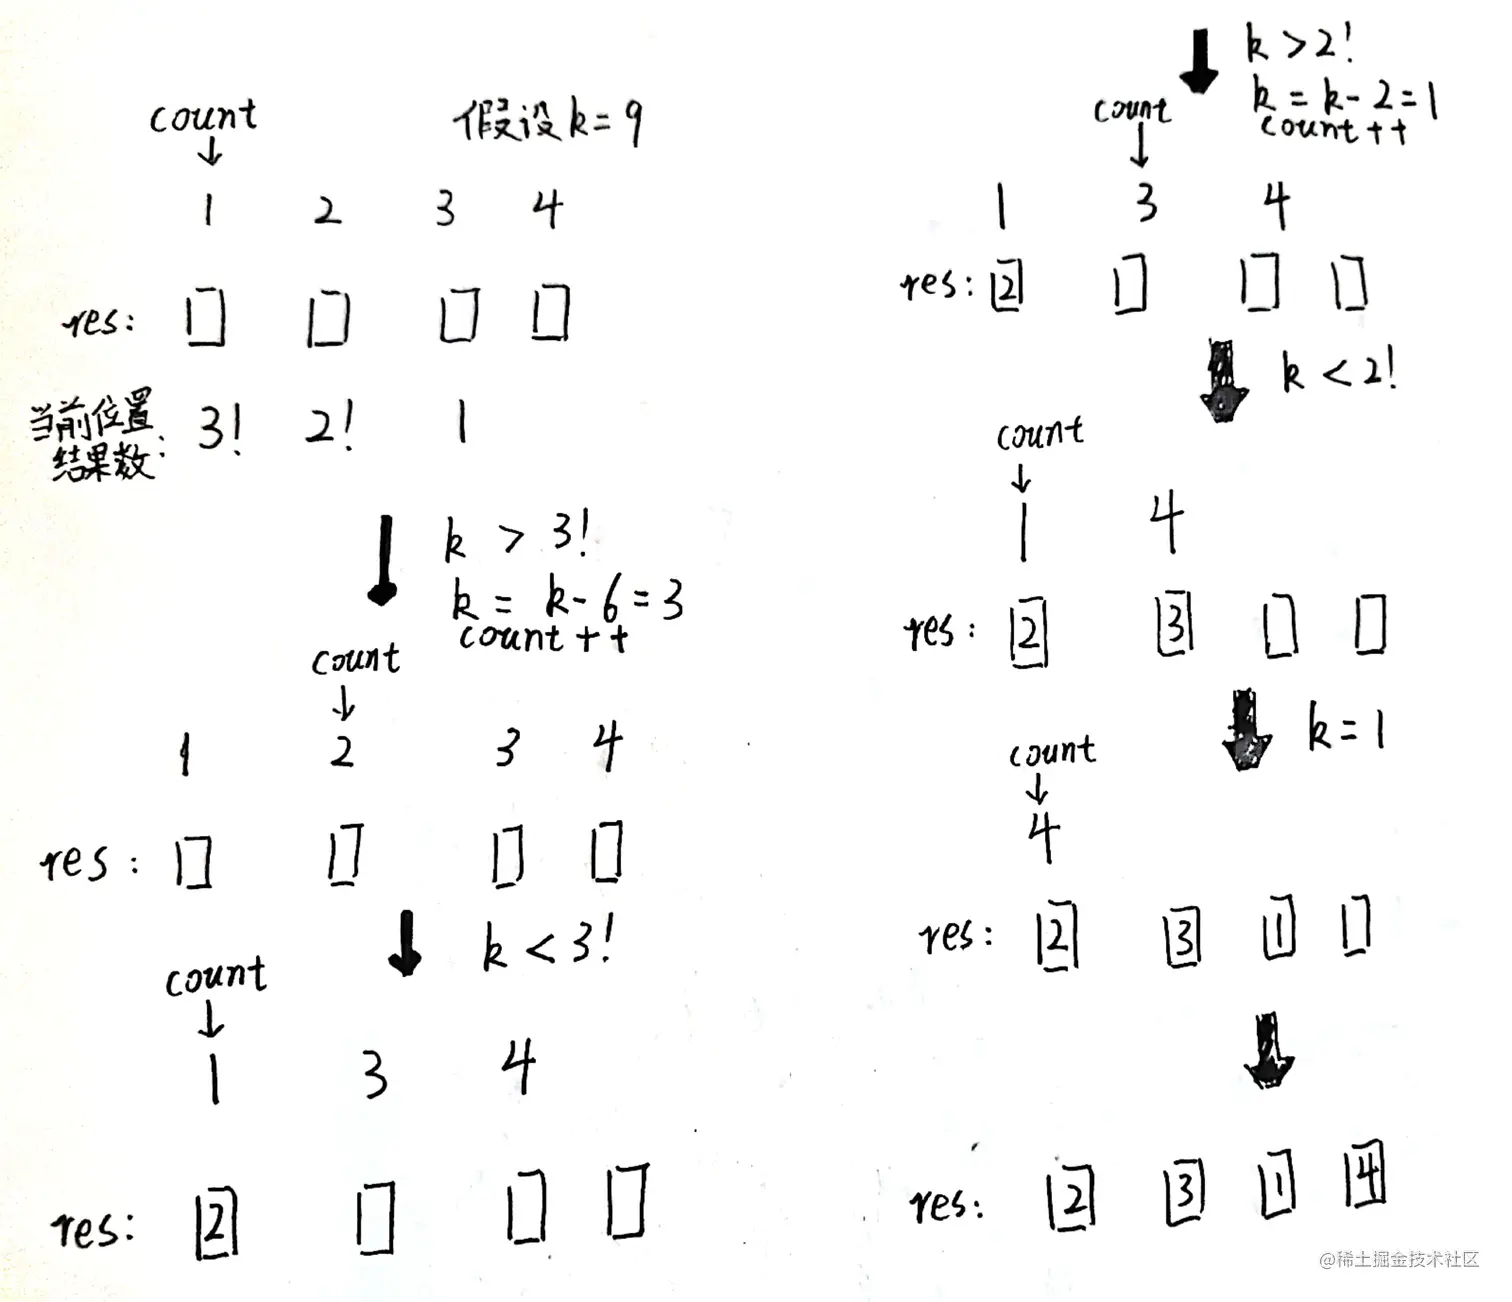 count
假设k=9
↓
1 2 3 4
res:
当前位置
结果数:
3! 2! 1
k > 3!
k = k-6=3
count++
count
↓
1 2 3 4
res:
k < 3!
count
↓
1 3 4
res: 2
k > 2!
k = k-2=1
count++
count
↓
1 3 4
res: 2
k < 2!
count
↓
1 4
res: 2 3
k = 1
count
↓
4
res: 2 3 1
res: 2 3 1 4
@稀土掘金技术社区